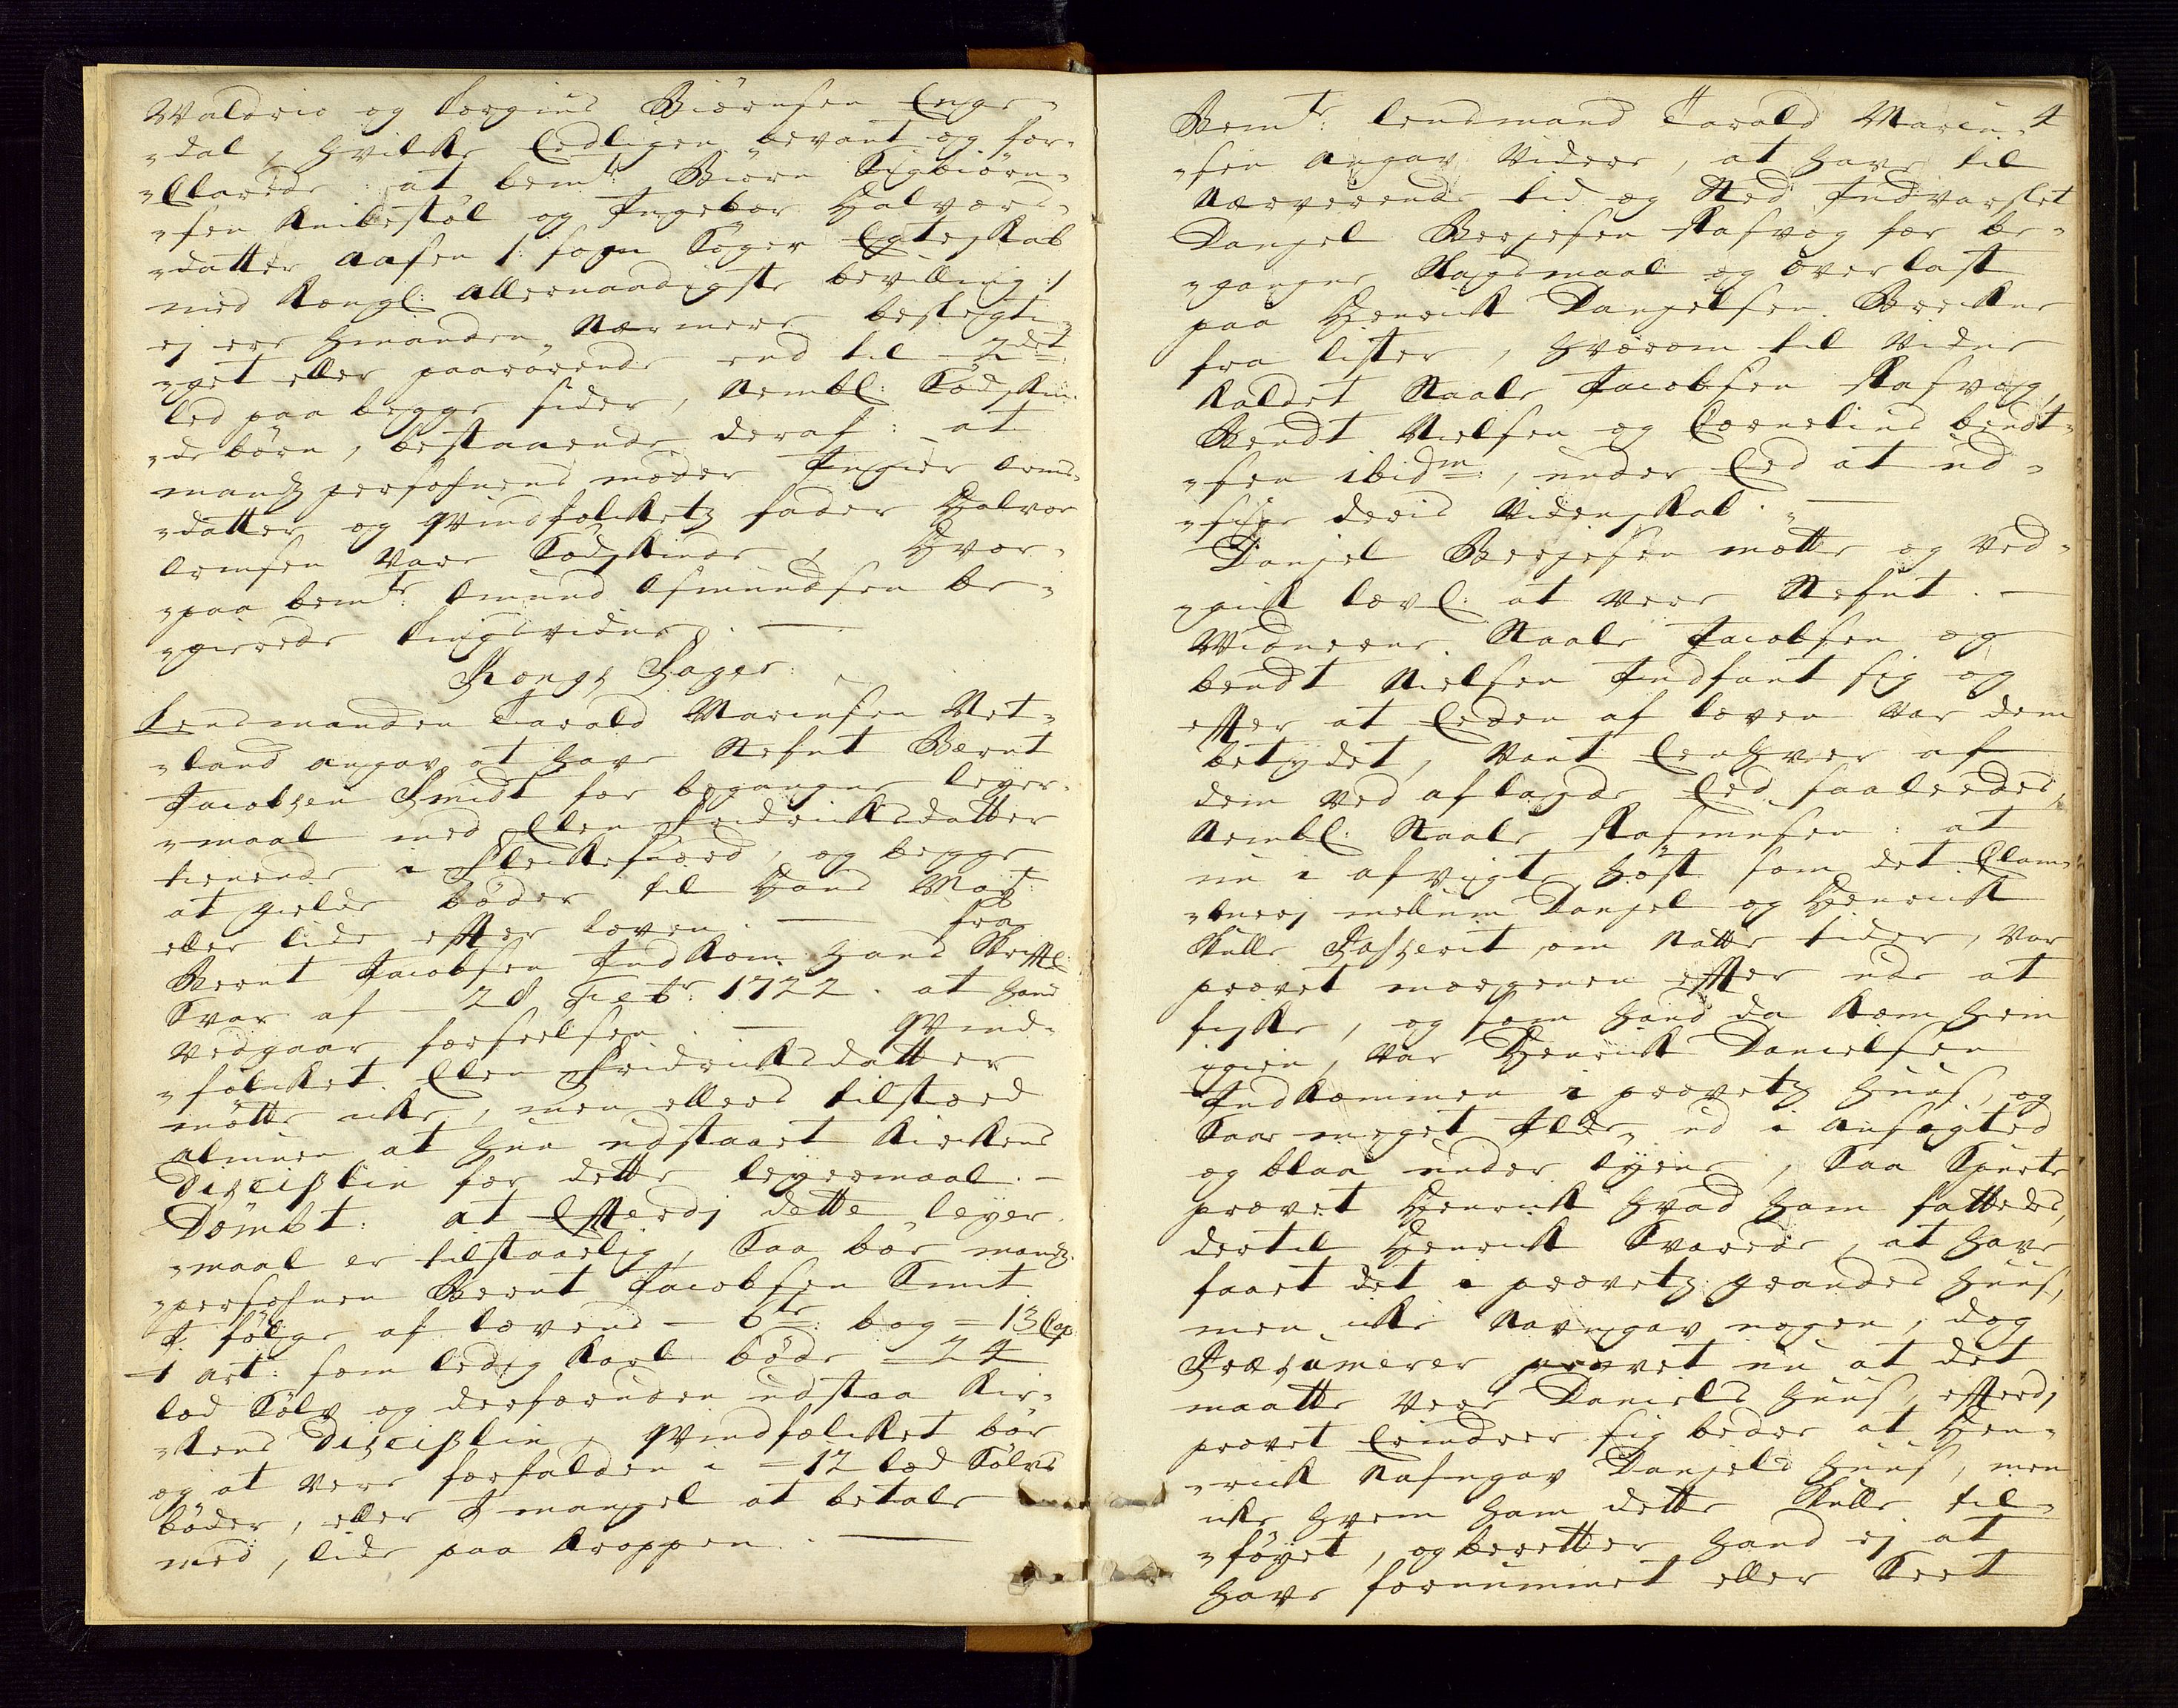 Waldrio og Torgius Biørnsen Enge-
„dal, hvilke Eedligen bevant og for-
„klarede: at bemte: Biørn Sigbiørn-
„sen Knibestøl og Ingebor Halvors-
„datter Aasen /: som Søger Egteskab
med Kongl: allernaadigste bevilling :/
ej ere hinanden Nærmere beslegti-
„get eller paarørende end til 2det
led paa begge sider, Nembl: Sødsken-
„de børn, bestaaende deraf: at
mandz persohnens moder Inger Orms-
„datter og qvindfolketz fader Halvor
Ormsen Vare Sødskinde, Hvor-
„paa bemte: Omund Asmundsen be-
„gierede tingsvidne. —
Kongs Sager:
Lensmanden Tarald Marcusen Net-
„land angav at have Stefnt Bernt
Jacobsen Smidt for begangne leyer-
„maal med Ellen Fridricksdatter
tienende i Fleckefiord, og begge
at gielde bøder til Hans Mayt:
eller lide efter loven. — fra
Bernt Jacobsen Indkom hans Skriftl:
Svar af — 28 Febr: 1722. at hand
Vedgaar forseelsen. — qvind-
„folcket Ellen Fridricksdatter
møtte icke, men ellers tilstoed
almuen at hun udstaaet Kirkens
Disciplin for dette leyermaal. —
Dømbt: at Efterdj dette leyer-
„maal er tilstaaelig, Saa bør mandz-
„persohnen Bernt Jacobsen Smit
I følge af lovens — 6te: bog — 13 Cap:
1 art: som ledig Karl bøde — 24
lod Sølv og desforuden udstaa Kir-
„kens Disciplin, qvindfolket bør
og at vere forfalden i — 12 lod Sølvs
bøder, eller I mangel at betale
med, lide paa Kroppen. —
4
Bemte: lensmand Tarald Marcu-
„sen angav Videre, at have til
Nærverende tid og Sted Indvarslet
Danjel Berjesen Rasvog for be-
„gangne Slagsmaal og overlast
paa Henrick Danjelsen Breckne
fra lister, hvorom til Vidne
Kaldet Staale Jacobsen Rasvog,
Bendt Nielsen og Cornelius bendt-
„sen ibidm:, under Eed at ud-
„sige deris Videnskab. —
Danjel Berjesen møtte og Ved-
„gick lovl: at vere Stefnt. —
Vidnerne Staale Jacobsen og
bendt Nielsen Indfant sig og
efter at Eeden af loven var dem
betydet, Vant Eenhver af
dem ved aflagde Eed saaledes,
Nembl: Staale Rasmusen: at
nu i afvigte høst som det Klam-
„merj mellum Danjel og Henrick
Skulle Passerit, om Natte tider, Var
provet morgenen efter ude at
fiske, og som hand da kom hiem
igien, var Henrick Danielsen
Indkommen i provetz huus, og
Saae meget Ilde ud i ansigted
og blaa under øyene, Saa Spurte
provet Henrick hvad ham fattedes,
dertil Henrick Svarede, at have
faaet det i provetz grandes huus,
men icke Navngav nogen, dog
Præsumerer provet nu at det
maatte vere Daniels huus, efterdj
provet Erindrer sig beder at Hen-
„rick Nafngav Danjels huus, men
icke hvem ham dette Skulle til-
„føyet, og beretter hand ej at
have fornummet eller Seet